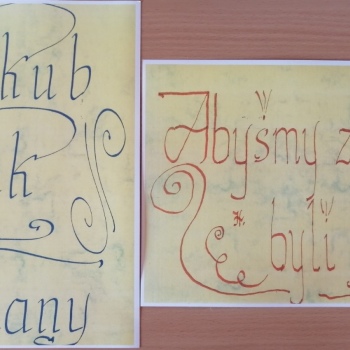 kub
k
any
Abyśmy z
byli